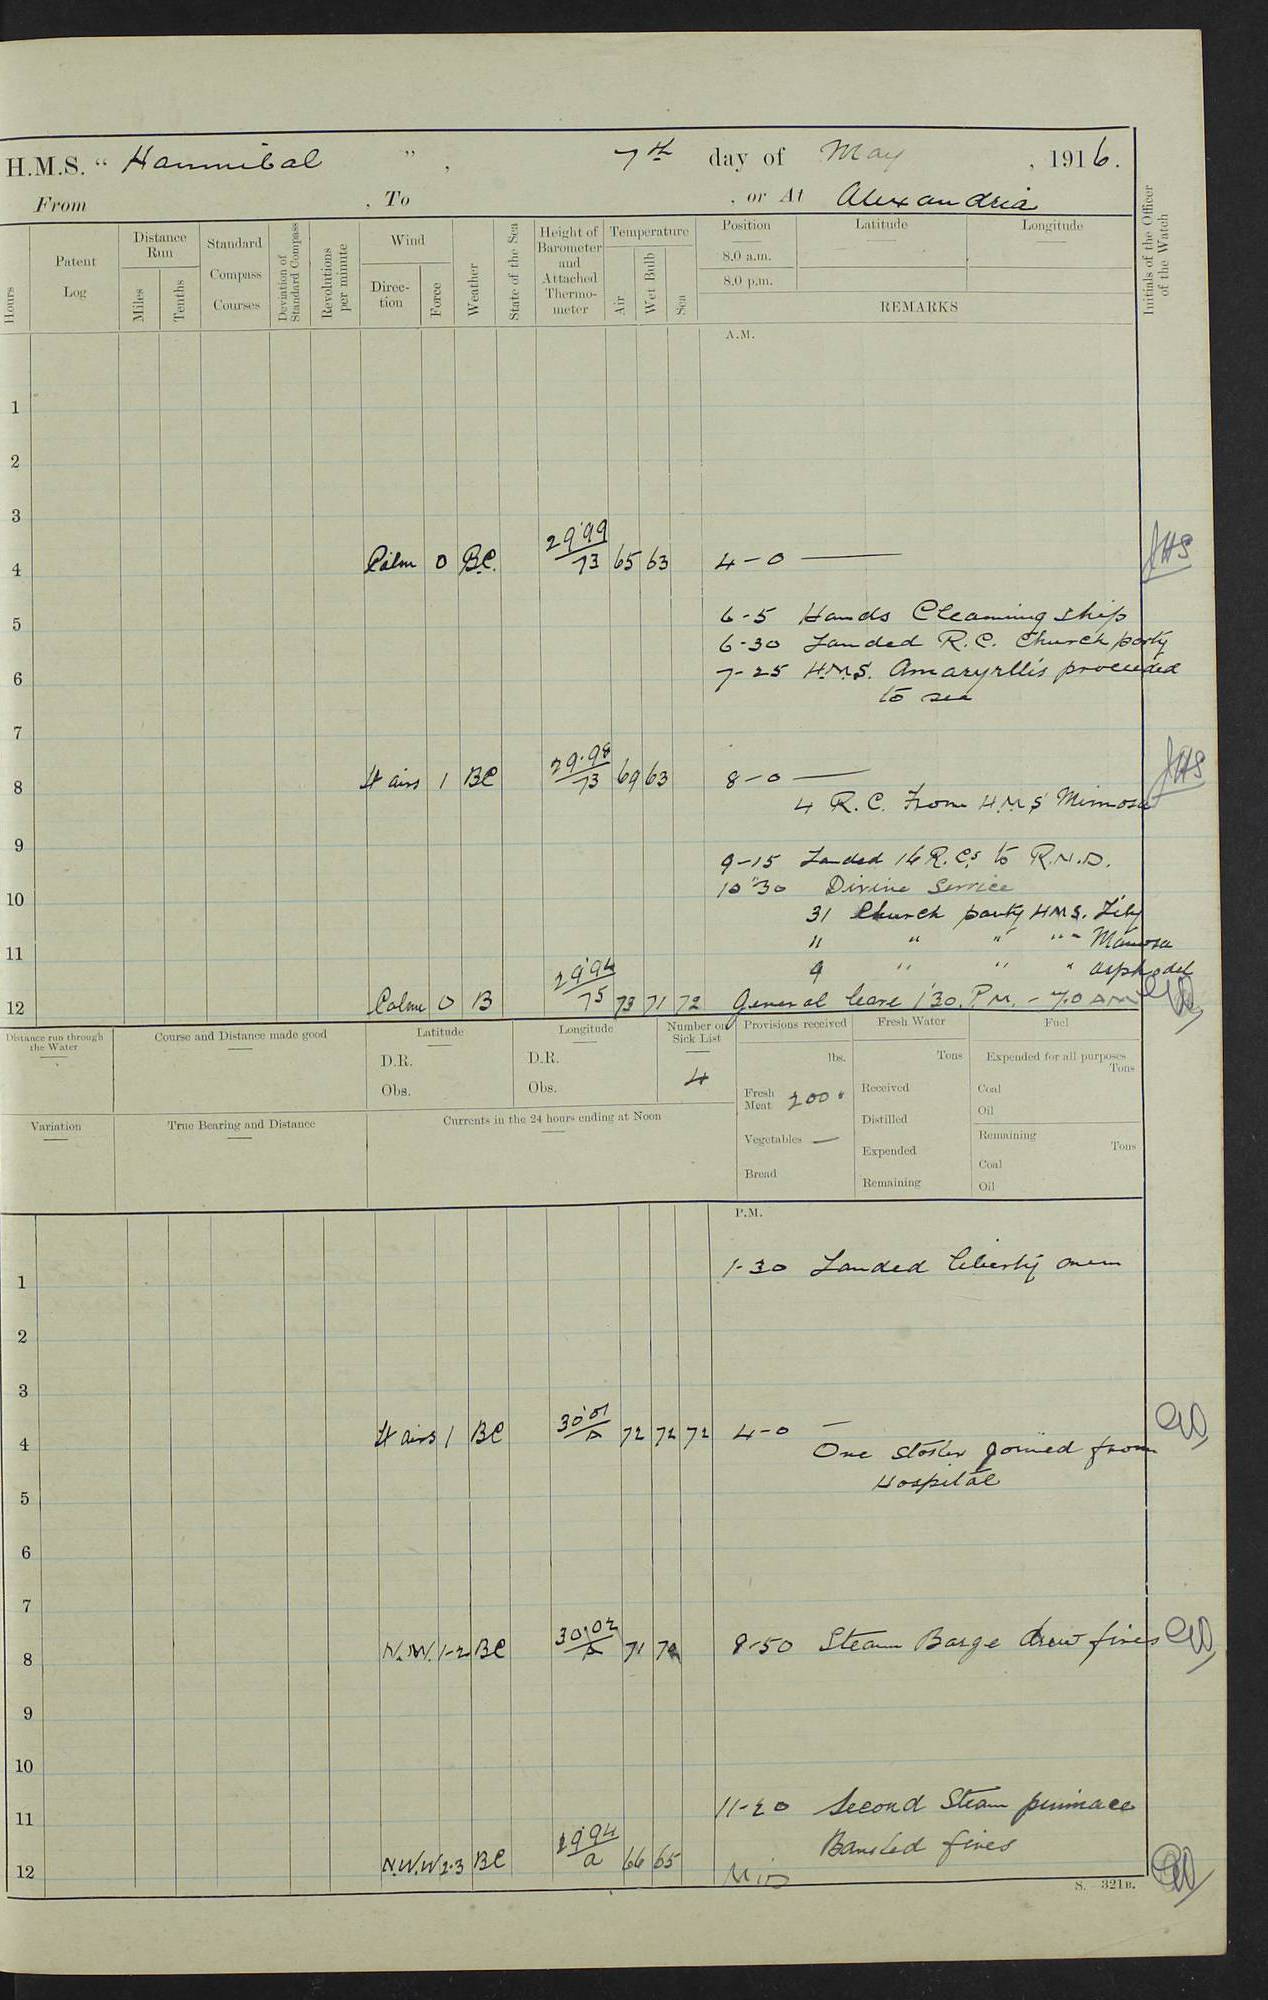 H.M.S. " Hannibal " , 7th day of May , 1916.
From , To , or At Alexandria
Hours
Patent Log
Distance Run
Miles
Tenths
Standard Compass Courses
Deviation of Standard Compass
Revolutions per minute
Wind
Direction
Force
Weather
State of the Sea
Height of Barometer and Attached Thermometer
Temperature
Air
Wet Bulb
Sea
Position
8.0 a.m.
8.0 p.m.
Latitude
Longitude
REMARKS
Initials of the Officer of the Watch
A.M.
1
2
3
4 Calm 0 B.C. 29.99 / 73 65 63 4-0 — JHS
6-5 Hands Cleaning ship
5
6-30 Landed R.C. Church party
6 7-25 H.M.S. Amaryllis proceeded
to sea
7
8 Lt airs 1 BC 29.98 / 73 69 63 8-0 — JHS
4 R.C. From H.M.S Mimosa
9
9-15 Landed 16 R.Cs to R.N.D.
10-30 Divine Service
10
31 Church party HMS. Lily
11 " " " " Mimosa
11
9 " " " Asphodel
12 Calm 0 B 29.94 / 75 73 71 72 General leave 1.30.P.M. - 7.0 AM
Distance run through the Water
Course and Distance made good
Latitude
D.R.
Obs.
Longitude
D.R.
Obs.
Number on Sick List
4
Provisions received
lbs.
Fresh Meat 200
Vegetables —
Bread
Fresh Water
Tons
Received
Distilled
Expended
Remaining
Fuel
Expended for all purposes
Tons
Coal
Oil
Remaining
Tons
Coal
Oil
Variation
True Bearing and Distance
Currents in the 24 hours ending at Noon
P.M.
1 1-30 Landed liberty men
2
3
4 Lt airs 1 BC 30.01 72 72 72 4-0 —
One stoker joined from
Hospital
5
6
7
8 N.W. 1-2 BC 30.02 71 8-50 Steam Barge drew fires
9
10
11 11-20 Second Steam pinnace
Banked fires
12 N.W.W 2-3 BC 29.94 / a 66 65 Mid
S. 321B.